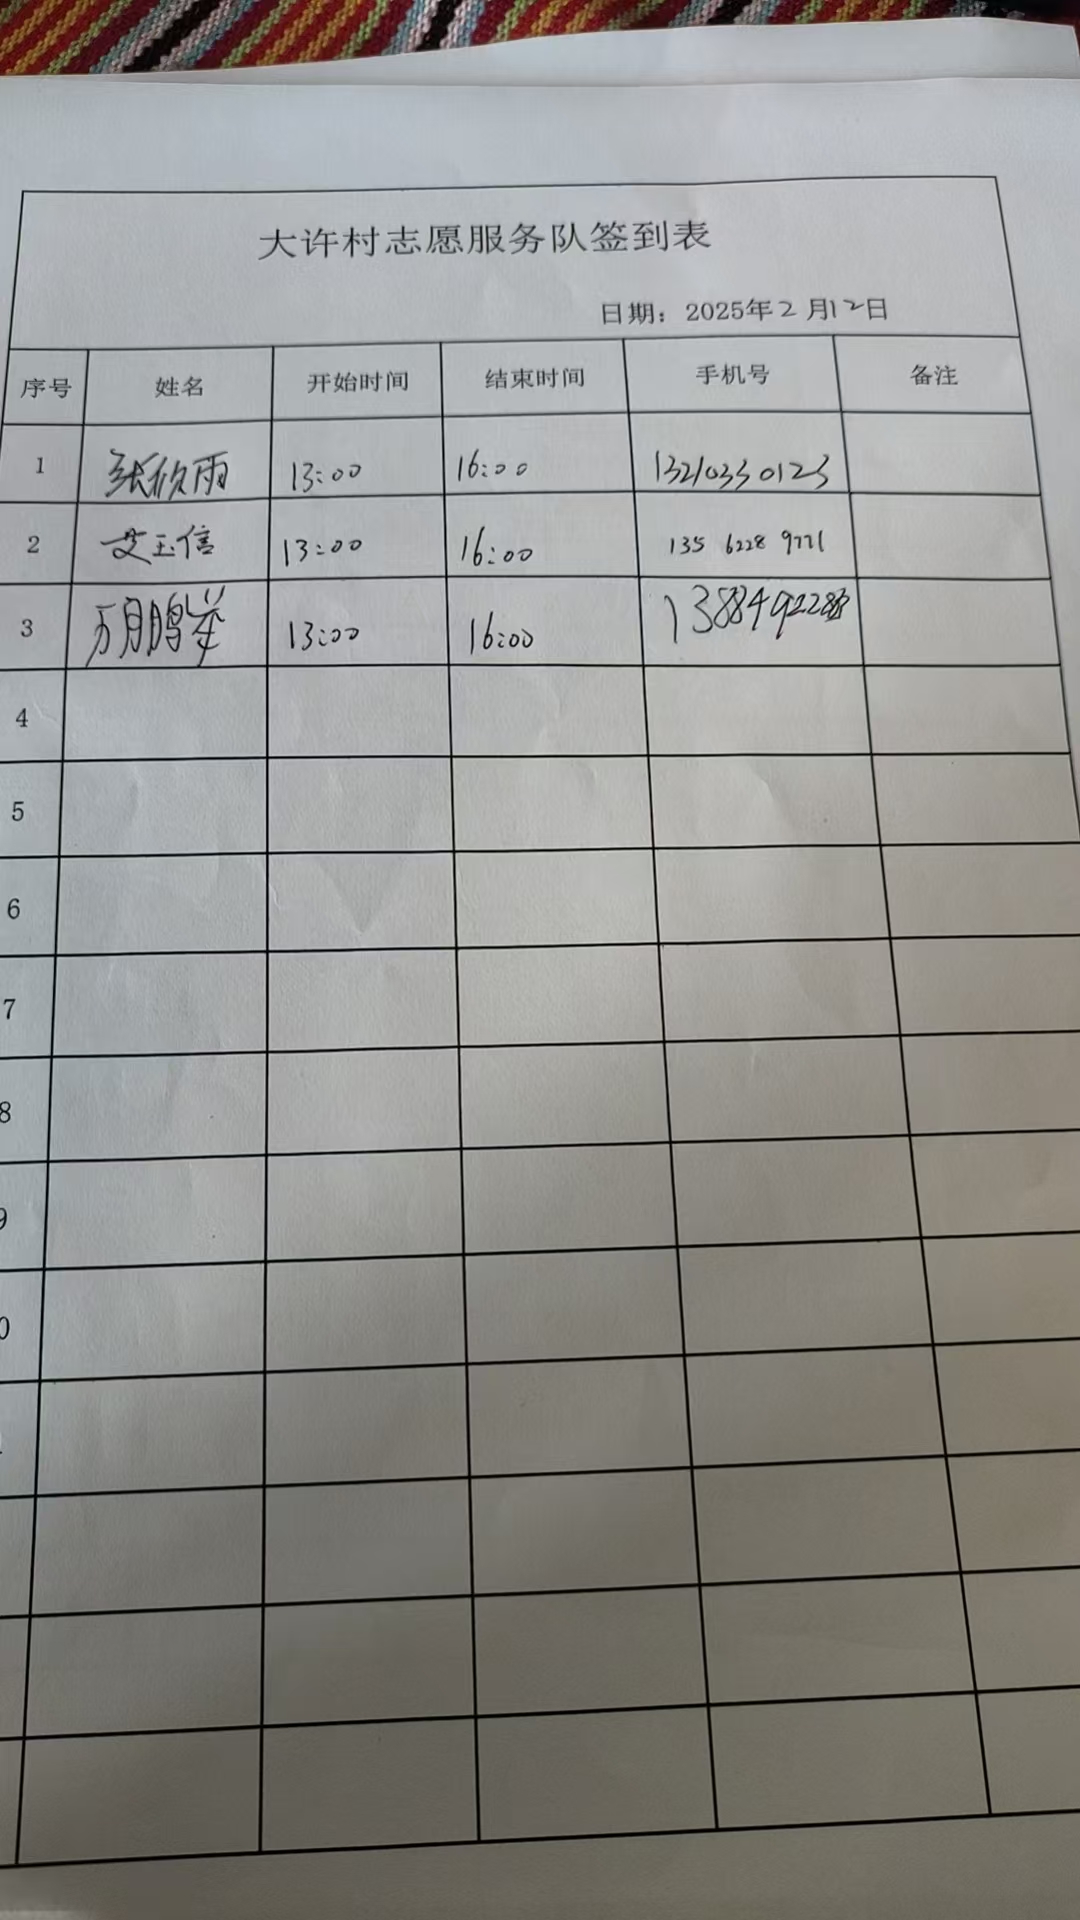 大许村志愿服务队签到表
日期：2025年2月12日
序号 姓名 开始时间 结束时间 手机号 备注
1 张欣雨 13:00 16:00 13210330123
2 艾玉信 13:00 16:00 135 6228 9771
3 万鹏举 13:00 16:00
4
5
6
7
8
9
0